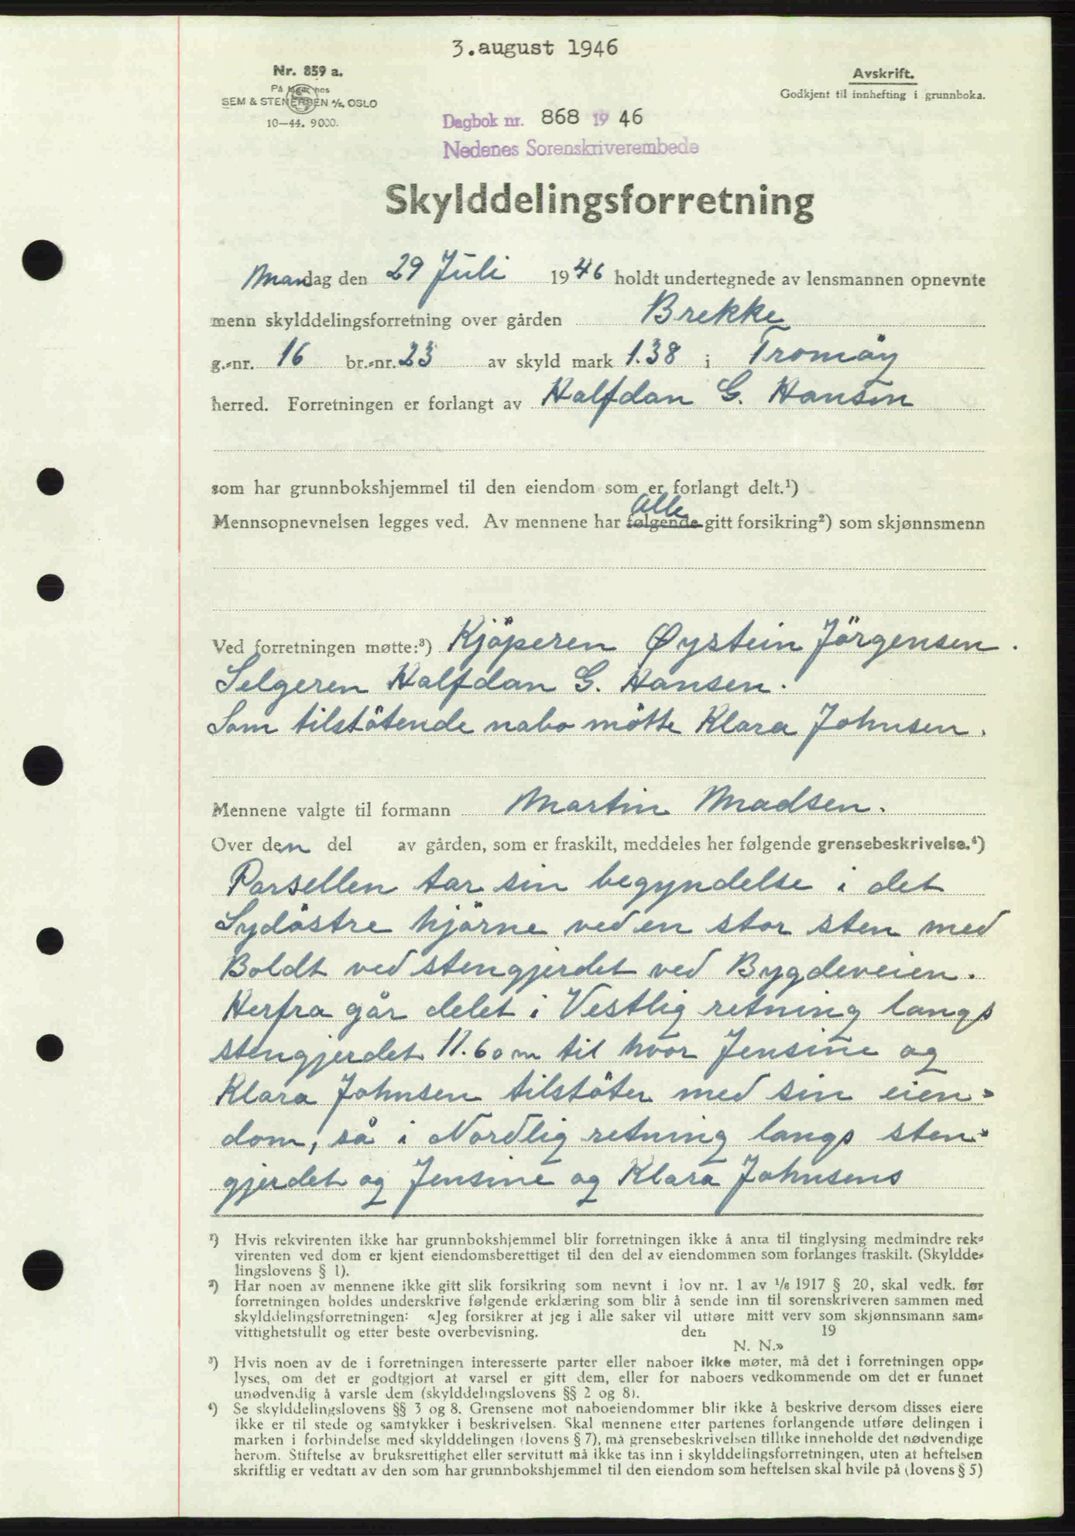 3.august 1946
Nr. 859 a.
På lager hos
SEM & STENERSEN A/S, OSLO
10-44. 9000.
Avskrift.
Godkjent til innhefting i grunnboka.
Dagbok nr. 868 19 46
Nedenes Sorenskriverembede
Skylddelingsforretning
Mandag den 29 Juli 1946 holdt undertegnede av lensmannen opnevnte
menn skylddelingsforretning over gården Brekke
g.-nr. 16 br.-nr. 23 av skyld mark 1.38 i Tromøy
herred. Forretningen er forlangt av Halfdan G. Hansen
som har grunnbokshjemmel til den eiendom som er forlangt delt.¹)
Alle
Mennsopnevnelsen legges ved. Av mennene har følgende gitt forsikring²) som skjønnsmenn
Ved forretningen møtte:³) Kjöperen Øystein Jörgensen.
Selgeren Halfdan G. Hansen.
Som tilstötende nabo mötte Klara Johnsen.
Mennene valgte til formann Martin Madsen.
Over den del av gården, som er fraskilt, meddeles her følgende grensebeskrivelse.⁴)
Parsellen tar sin begyndelse i det
Sydöstre hjörne ved en stor sten med
Boldt ved stengjerdet ved Bygdeveien.
Herfra går delet i Vestlig retning langs
stengjerdet 11.60 m til hvor Jensine og
Klara Johnsen tilstöter med sin eien-
dom, så i Nordlig retning langs sten-
gjerdet og Jensine og Klara Johnsens
¹) Hvis rekvirenten ikke har grunnbokshjemmel blir forretningen ikke å anta til tinglysing medmindre rek-
virenten ved dom er kjent eiendomsberettiget til den del av eiendommen som forlanges fraskilt. (Skyldde-
lingslovens § 1).
²) Har noen av mennene ikke gitt slik forsikring som nevnt i lov nr. 1 av 1/6 1917 § 20, skal vedk. før
forretningen holdes underskrive følgende erklæring som blir å sende inn til sorenskriveren sammen med
skylddelingsforretningen: «Jeg forsikrer at jeg i alle saker vil utføre mitt verv som skjønnsmann sam-
vittighetsfullt og etter beste overbevisning. den 19
N. N.»
³) Hvis noen av de i forretningen interesserte parter eller naboer ikke møter, må det i forretningen opp-
lyses, om det er godtgjort at varsel er gitt dem, eller for naboers vedkommende om det er funnet
unødvendig å varsle dem (skylddelingslovens §§ 2 og 8).
⁴) Se skylddelingslovens §§ 3 og 8. Grensene mot naboeiendommer blir ikke å beskrive dersom disses eiere
ikke er til stede og samtykker i beskrivelsen. Skal mennene etter partenes forlangende utføre delingen i
marken i forbindelse med skylddelingen (lovens § 7), må grensebeskrivelsen tillike inneholde det nødvendige
herom. Stiftelse av bruksrettighet eller servitutt må ikke tas inn i skylddelingsforretningen, uten at heftelsen
skriftlig er vedtatt av den som har grunnbokshjemmel til den eiendom som heftelsen skal hvile på (lovens § 5)